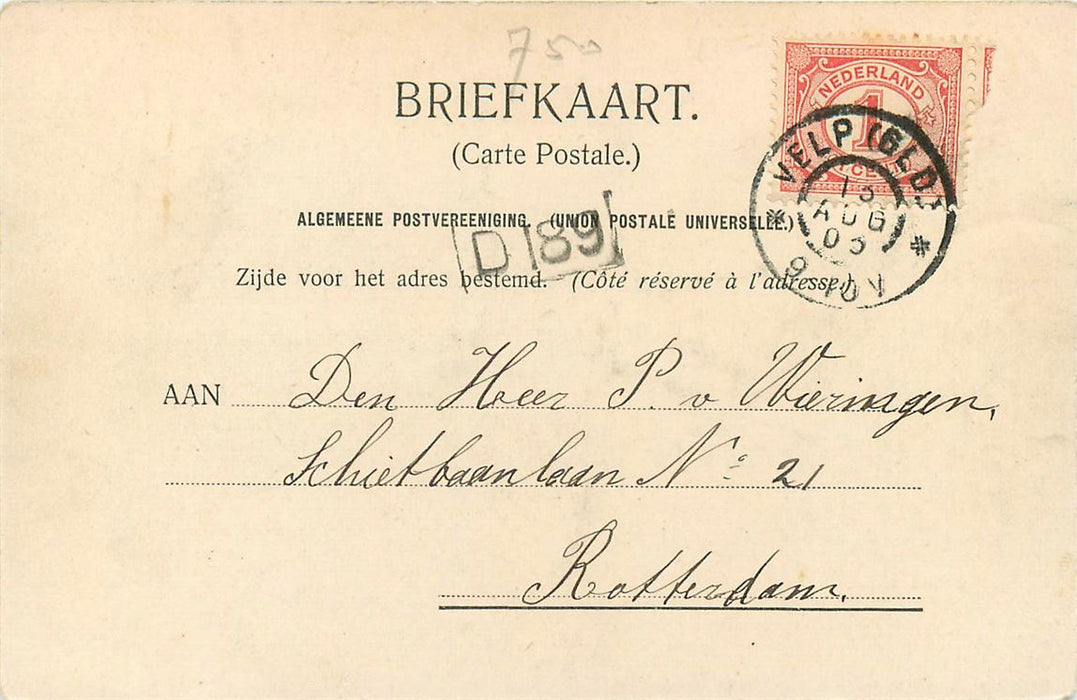 750
BRIEFKAART.
(Carte Postale.)
NEDERLAND
1
CENT
VELP (GLD)
AUG
ALGEMEENE POSTVEREENIGING. (UNION POSTALE UNIVERSELLE.)
D 89
Zijde voor het adres bestemd. (Côté réservé à l'adresse.)
AAN Den Heer P. v Wieringen,
Schietbaanlaan No 21
Rotterdam.